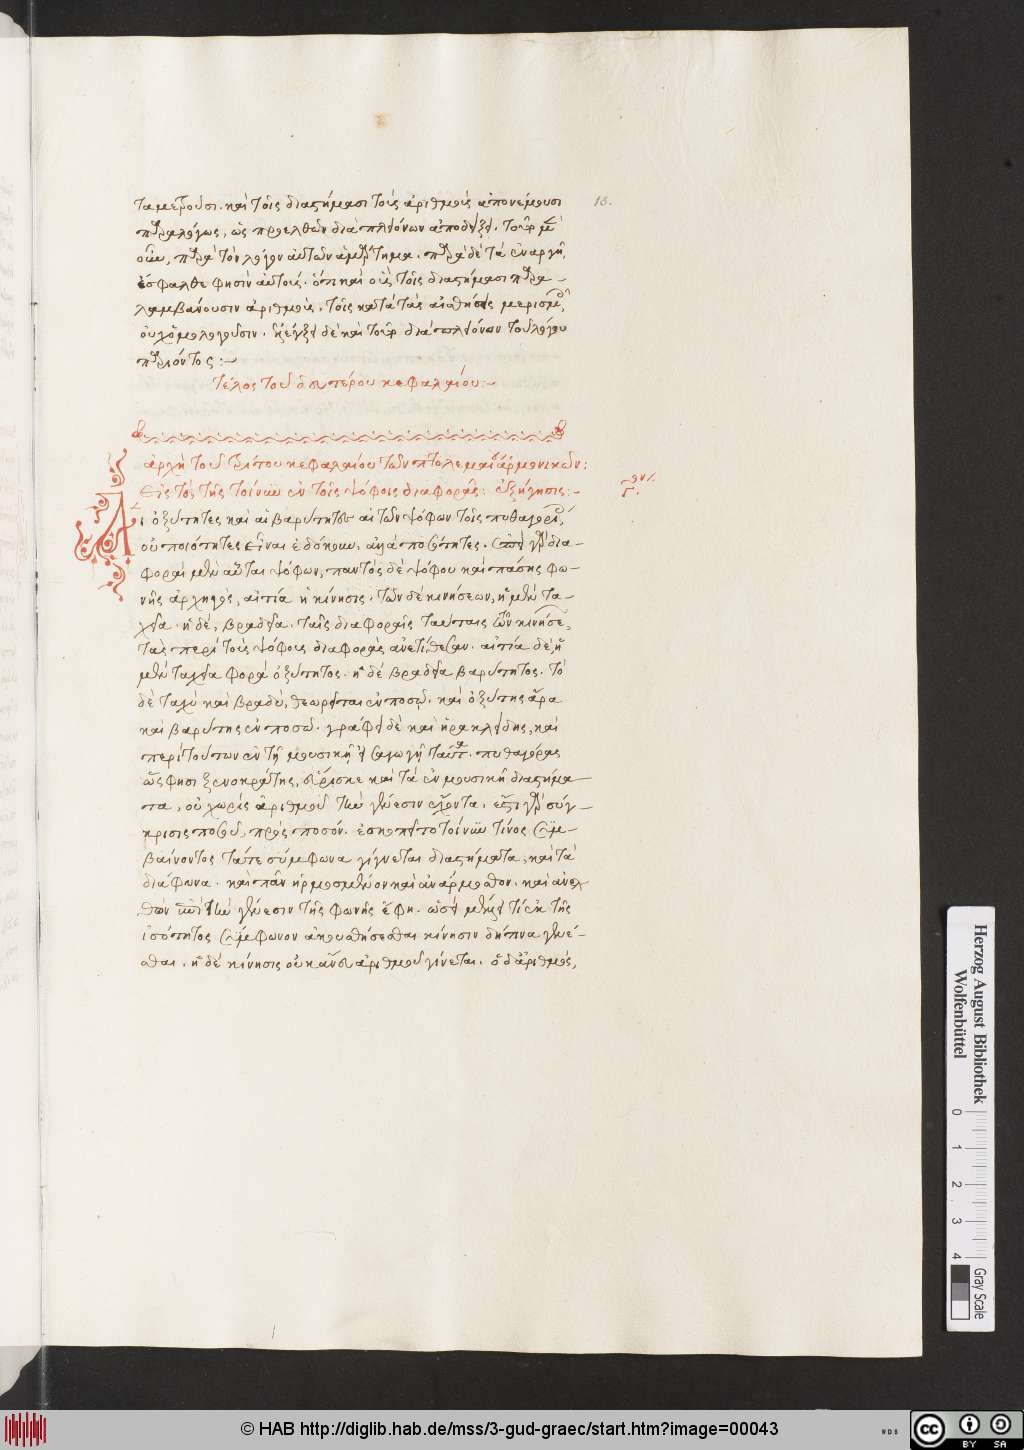 ταμετροῦσι. καὶ τοῖς διαστήμασι τοὺς ἀριθμοὺς ἀπονέμουσι 18.
παραλόγως, ὡς προελθὼν διὰ πλειόνων ἀποδείξει.
παρὰ τὸν λόγον αὐτῶν ἁμάρτημα. παρὰ δὲ τὰ ἐναργῆ,
ἐσφάλθαι φησὶν αὐτούς. ὅτι καὶ οἷς τοῖς διαστήμασι παρα-
λαμβάνουσιν ἀριθμοῖς, τοῖς κατὰ τὰς αἰσθήσεις μερισμοῖς,
οὐχ ὁμολογοῦσιν. ἐλέγξει δὲ καὶ τοῦτο διὰ πλειόνων τοῦ λόγου
προϊόντος:-
τέλος τοῦ δευτέρου κεφαλαίου:-
ἀρχὴ τοῦ τρίτου κεφαλαίου τῶν πτολεμαίου ἁρμονικῶν:
εἰς τὸ τῆς τοίνυν ἐν τοῖς ψόφοις διαφορᾶς: ἐξήγησις:-
Αἱ ὀξύτητες καὶ αἱ βαρύτητες αἱ τῶν ψόφων τοῖς πυθαγορείοις,
οὐ ποιότητες εἶναι ἐδόκουν, ἀλλὰ ποσότητες. γὰρ δια-
φοραὶ μὲν αὗται ψόφων, παντὸς δὲ ψόφου καὶ πάσης φω-
νῆς ἀρχηγὸς, αἰτία ἡ κίνησις. τῶν δὲ κινήσεων, ἡ μὲν τα-
χεῖα. ἡ δὲ, βραδεῖα. ταῖς διαφοραῖς ταύταις τῶν κινήσεων,
τὰς περὶ τοὺς ψόφους διαφορὰς ἀνετίθεσαν. αἰτία δὲ ἡ
μὲν ταχεῖα φορὰ ὀξύτητος. ἡ δὲ βραδεῖα βαρύτητος. τὸ
δὲ ταχὺ καὶ βραδὺ, θεωρεῖται ἐν ποσῷ. καὶ ὀξύτης ἄρα
καὶ βαρύτης ἐν ποσῷ. γράφει δὲ καὶ ἡρακλείδης, καὶ
περὶ τούτων ἐν τῇ μουσικῇ εἰσαγωγῇ ταῦτα. πυθαγόρας
ὥς φησι ξενοκράτης, εὕρισκε καὶ τὰ ἐν μουσικῇ διαστήμα
τα, οὐ χωρὶς ἀριθμοῦ τὴν γένεσιν ἔχοντα. ἔστι γὰρ σύγ-
κρισις ποσοῦ, πρὸς ποσόν. ἐσκοπεῖτο τοίνυν τίνος συμ-
βαίνοντος τά τε σύμφωνα γίγνεται διαστήματα, καὶ τὰ
διάφωνα. καὶ πᾶν ἡρμοσμένον καὶ ἀνάρμοστον. καὶ ἀνελ
θὼν ἐπὶ τὴν γένεσιν τῆς φωνῆς ἔφη. ὡς εἰ μέλλει τί ἐκ τῆς
ἰσότητος σύμφωνον ἀκουσθήσεσθαι κίνησιν δεῖ τινα γενέ-
σθαι. ἡ δὲ κίνησις οὐκ ἄνευ ἀριθμοῦ γίνεται. ὁ δ' ἀριθμὸς,
Herzog August Bibliothek
Wolfenbüttel
0 1 2 3 4
Gray Scale
© HAB http://diglib.hab.de/mss/3-gud-graec/start.htm?image=00043
WDB
cc BY SA